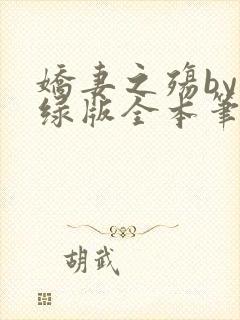 娇妻之殇by
绿版全本笔
胡武